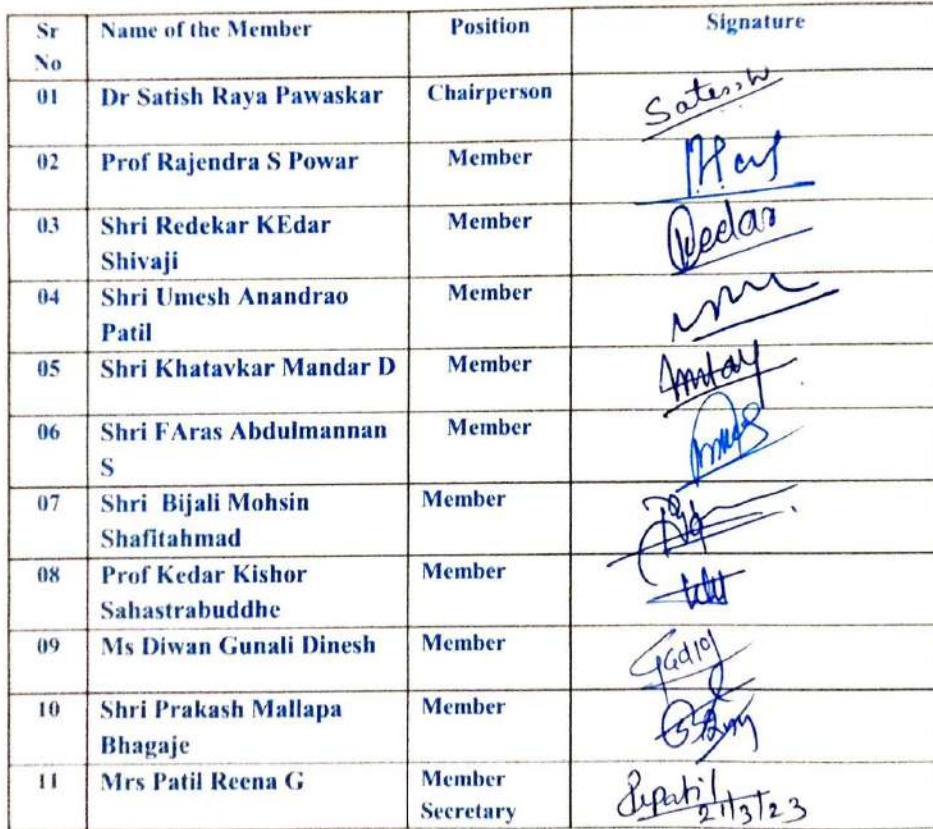 Sr No Name of the Member Position Signature
01 Dr Satish Raya Pawaskar Chairperson
02 Prof Rajendra S Powar Member
03 Shri Redekar KEdar Shivaji Member Kedar
04 Shri Umesh Anandrao Patil Member
05 Shri Khatavkar Mandar D Member
06 Shri FAras Abdulmannan S Member
07 Shri Bijali Mohsin Shafitahmad Member
08 Prof Kedar Kishor Sahastrabuddhe Member
09 Ms Diwan Gunali Dinesh Member
10 Shri Prakash Mallapa Bhagaje Member
11 Mrs Patil Reena G Member Secretary Rpatil 21/3/23